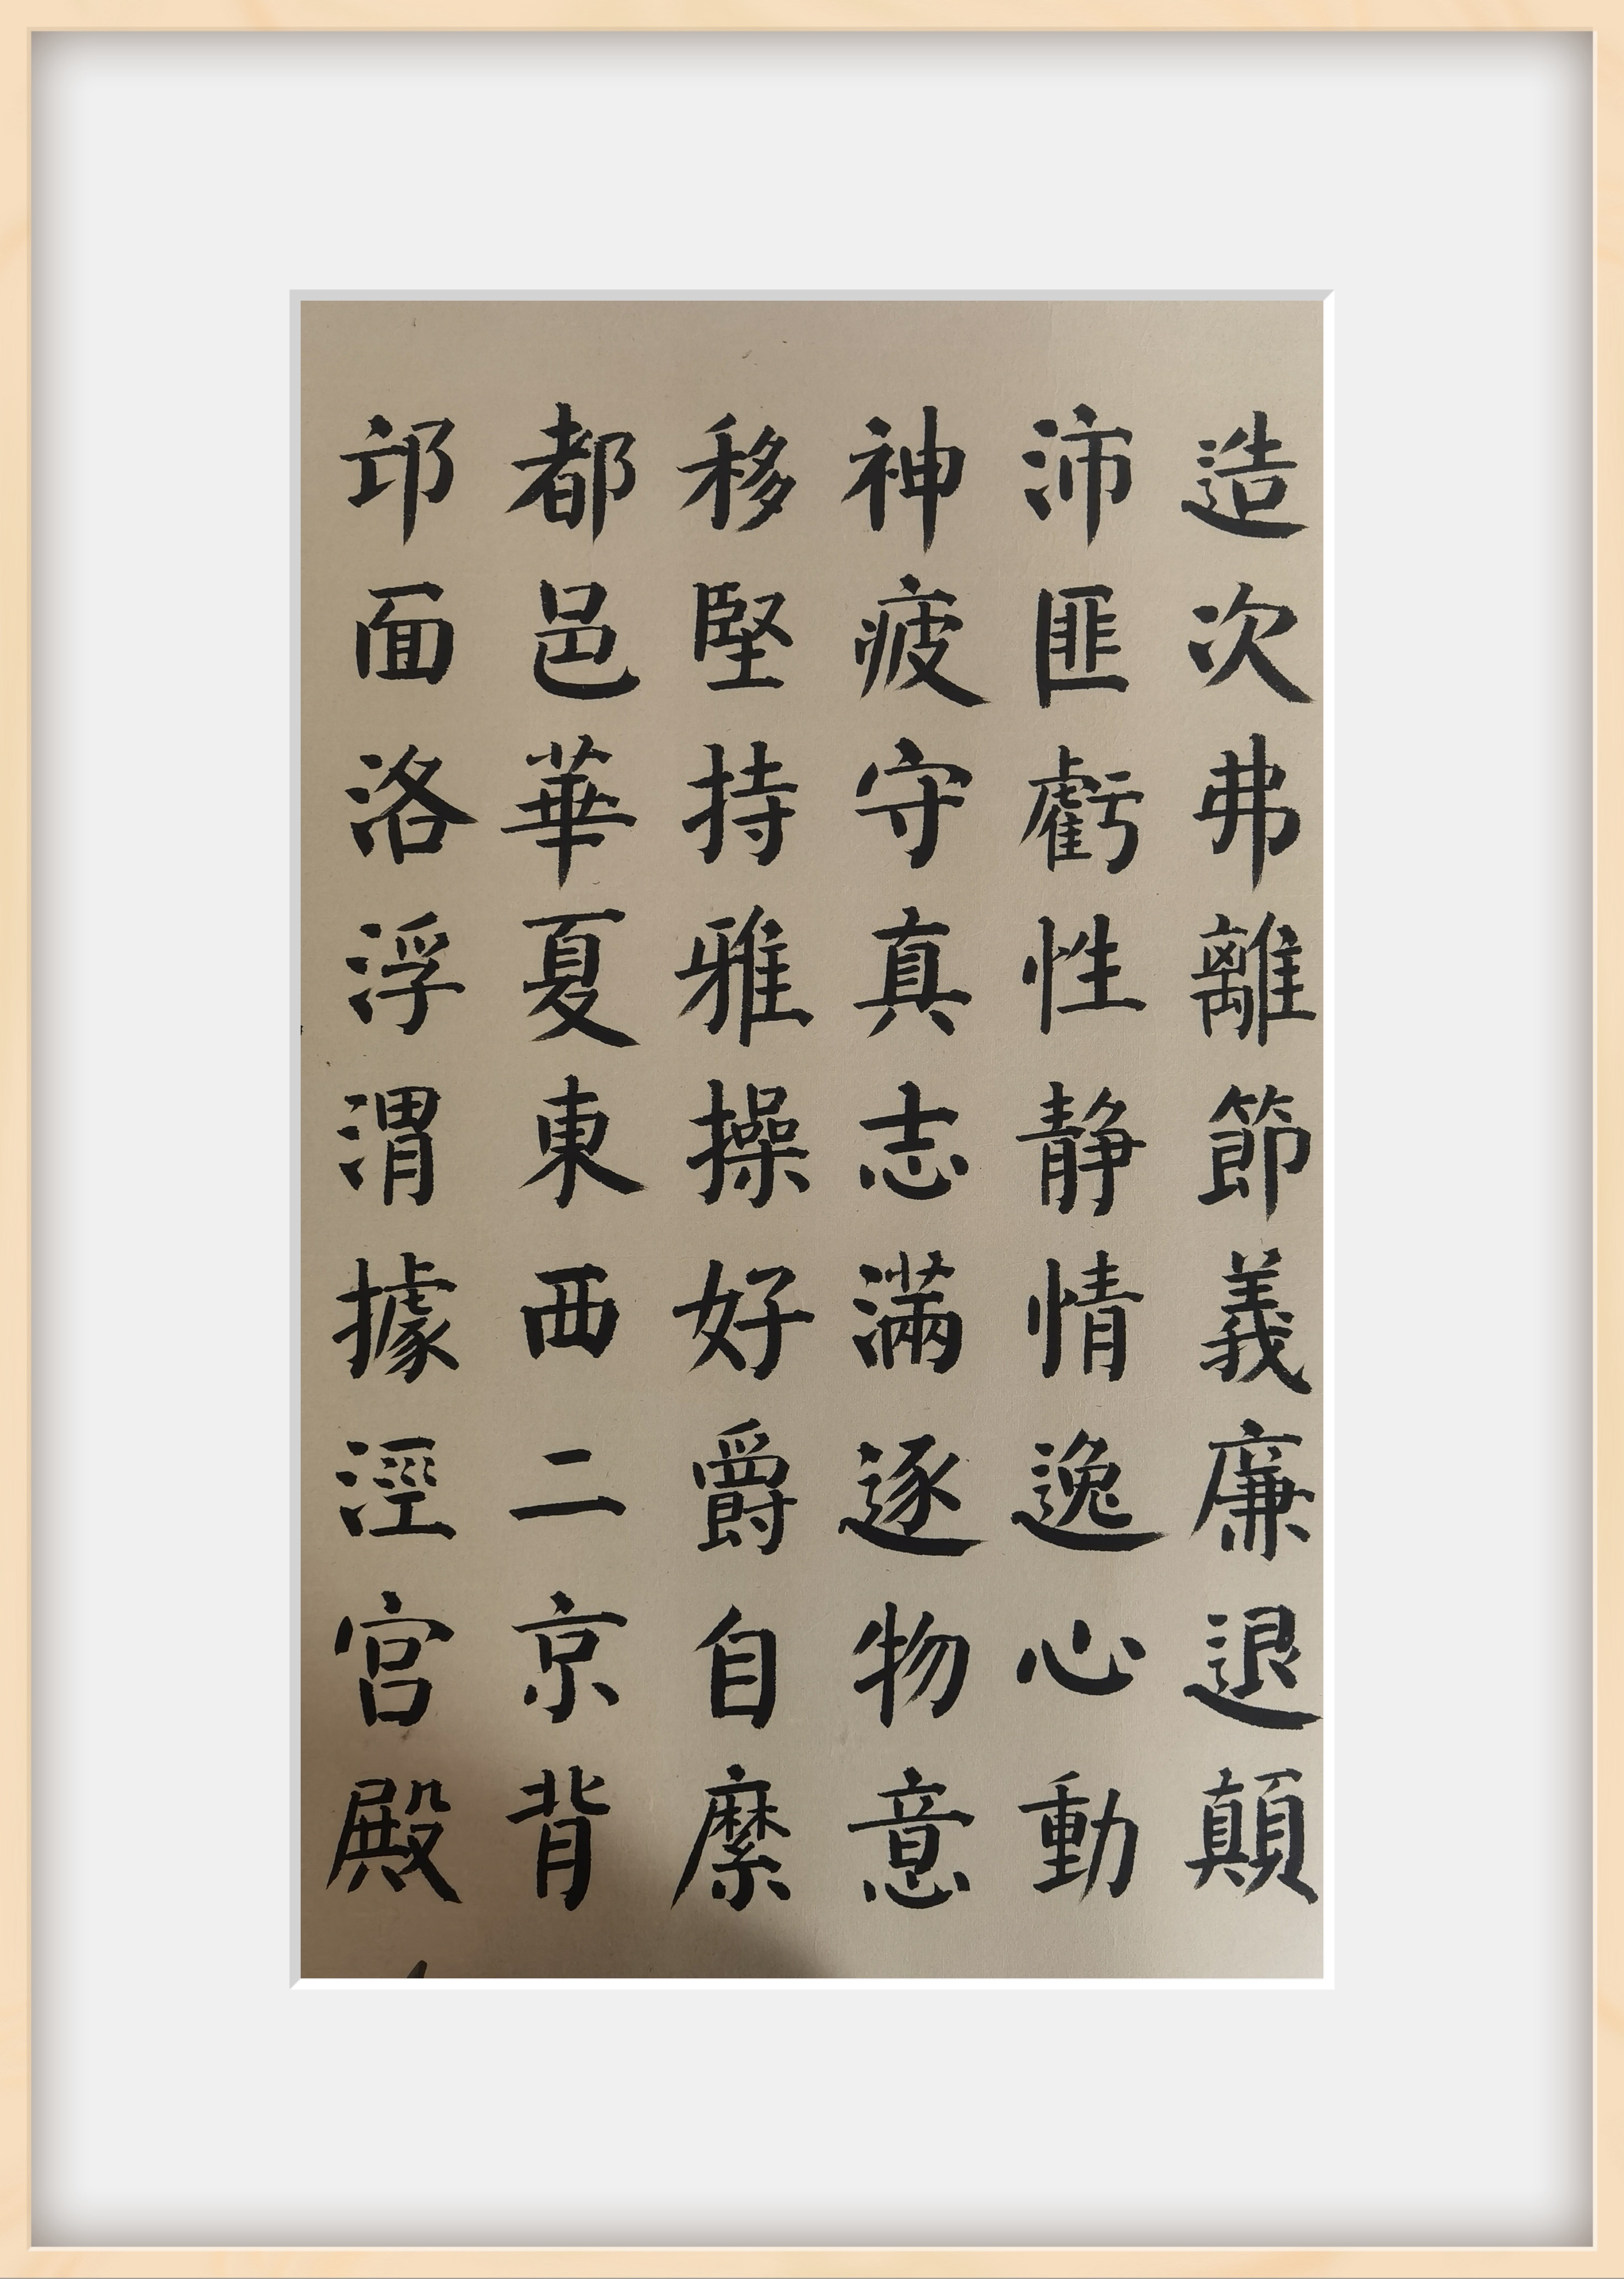 造次弗離節義廉退顛
沛匪虧性靜情逸心動
神疲守真志滿逐物意
移堅持雅操好爵自縻
都邑華夏東西二京背
邙面洛浮渭據涇宮殿